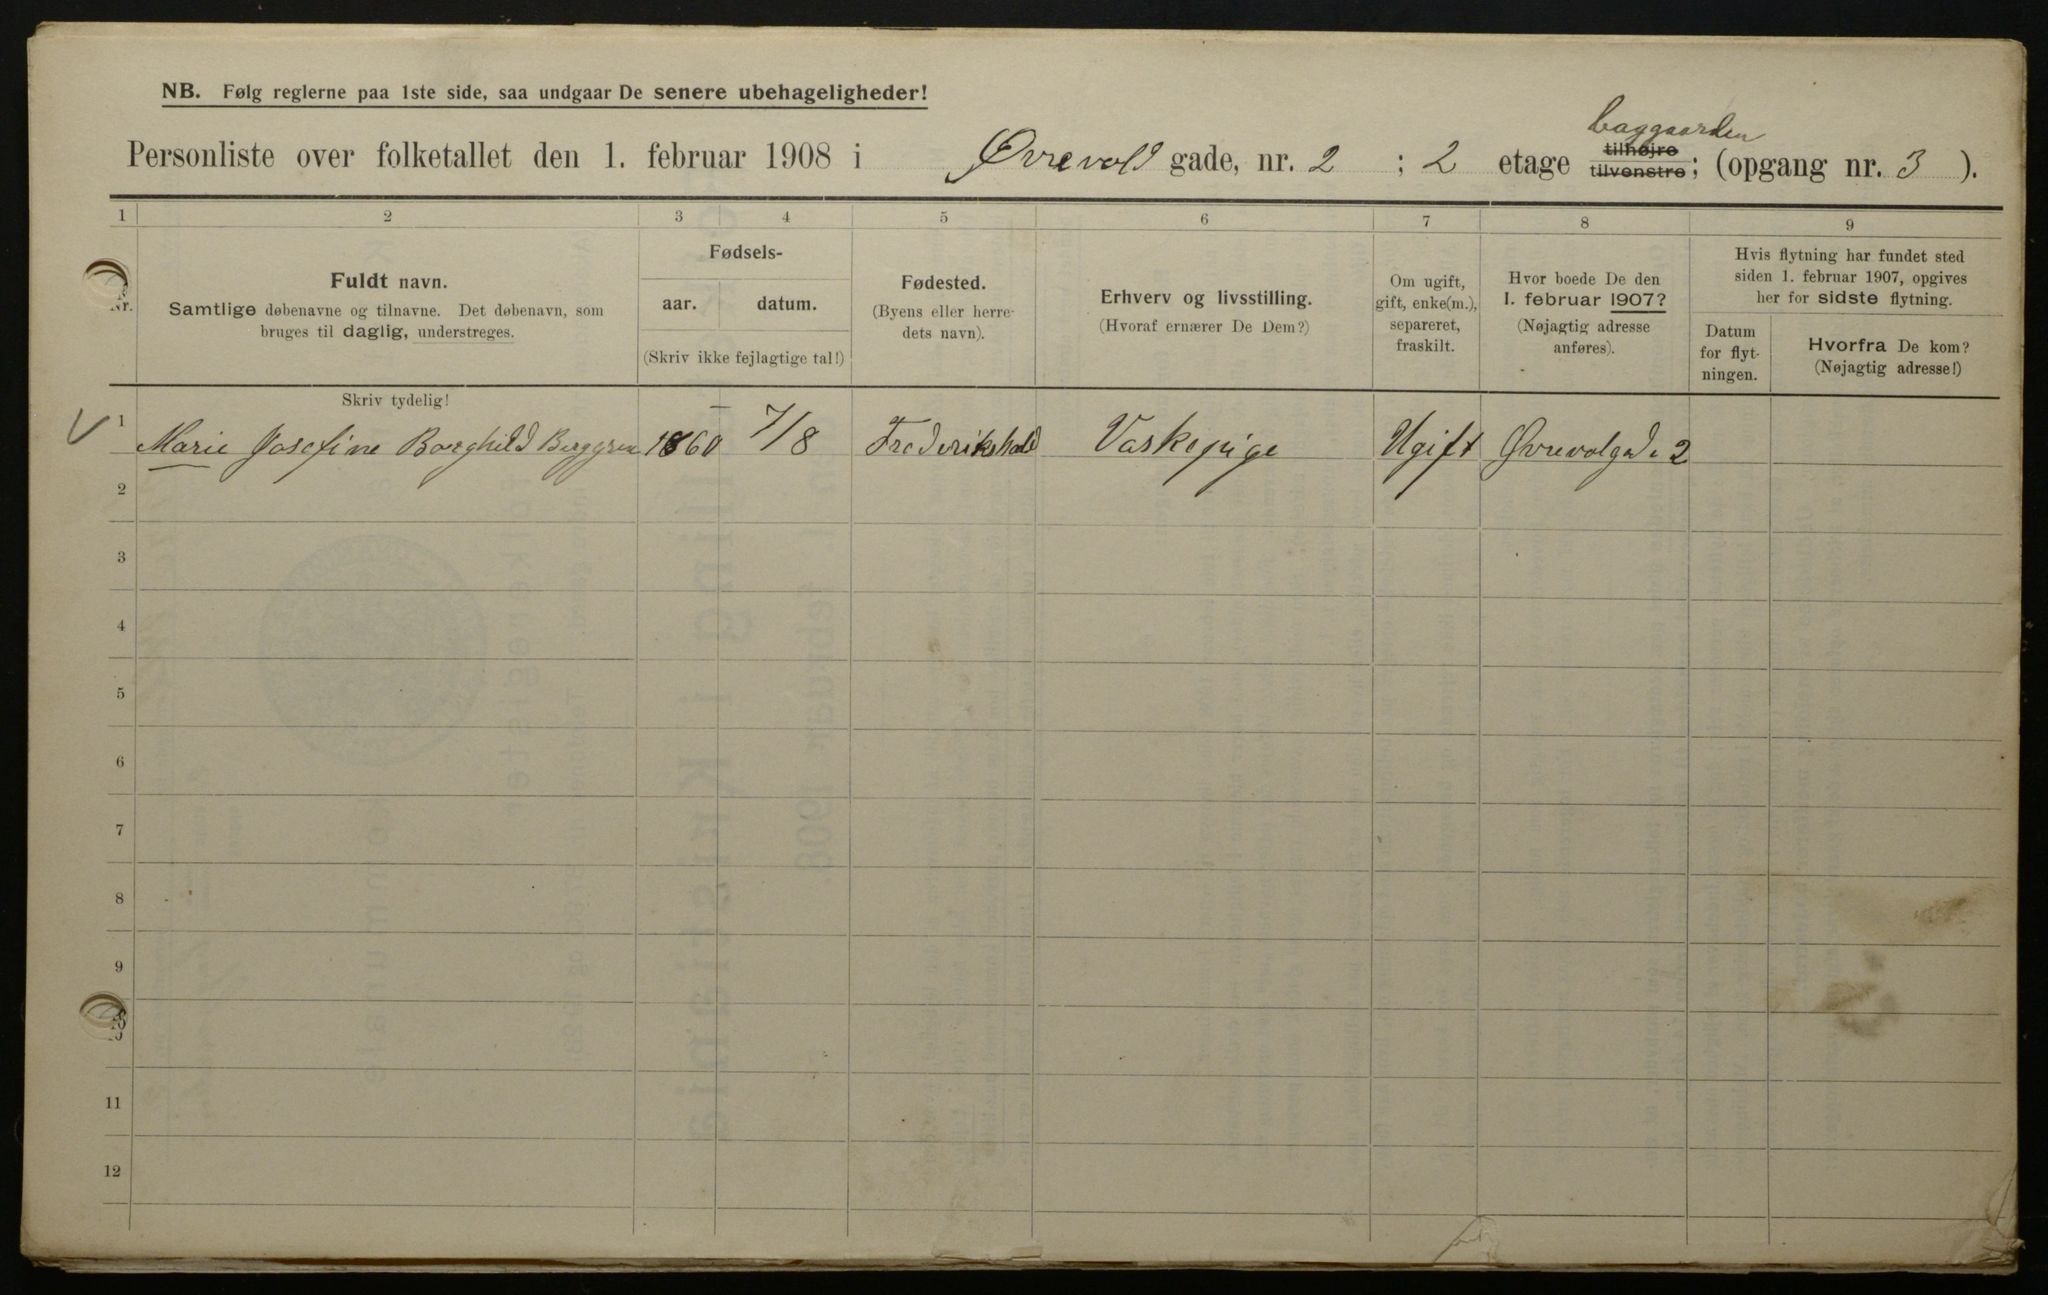 NB. Følg reglerne paa 1ste side, saa undgaar De senere ubehageligheder!
baggaarden
Personliste over folketallet den 1. februar 1908 i Øvrevold gade, nr. 2 ; 2 etage tilhøjre tilvenstre; (opgang nr. 3 ).
1 2 3 4 5 6 7 8 9
Nr.
Fuldt navn.
Samtlige døbenavne og tilnavne. Det døbenavn, som
bruges til daglig, understreges.
Skriv tydelig!
Fødsels-
aar. datum.
(Skriv ikke fejlagtige tal!)
Fødested.
(Byens eller herre-
dets navn).
Erhverv og livsstilling.
(Hvoraf ernærer De Dem?)
Om ugift,
gift, enke(m.),
separeret,
fraskilt.
Hvor boede De den
1. februar 1907?
(Nøjagtig adresse
anføres).
Hvis flytning har fundet sted
siden 1. februar 1907, opgives
her for sidste flytning.
Datum
for flyt-
ningen.
Hvorfra De kom?
(Nøjagtig adresse!)
1 Marie Josefine Borghild Berggren 1860 7/8 Frederikshald Vaskepige Ugift Øvrevolgad. 2
2
3
4
5
6
7
8
9
10
11
12